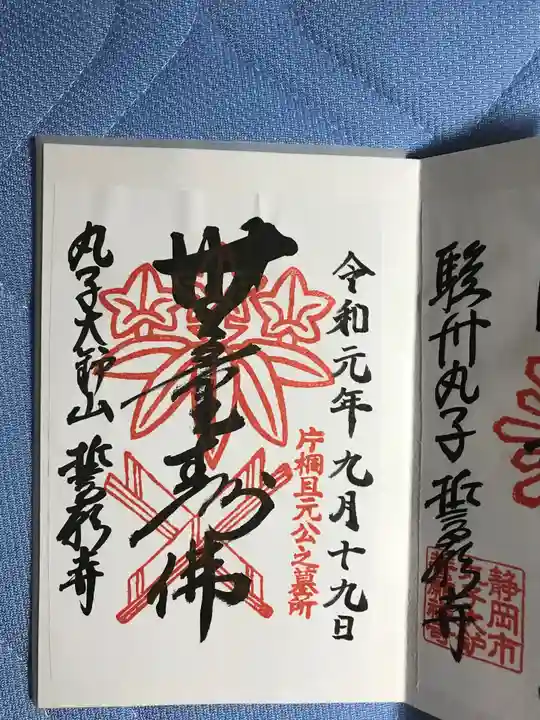 駿州丸子 誓願寺
静岡市
令和元年九月十九日
片桐且元公之墓所
無量寿佛
丸子大鈩山 誓願寺